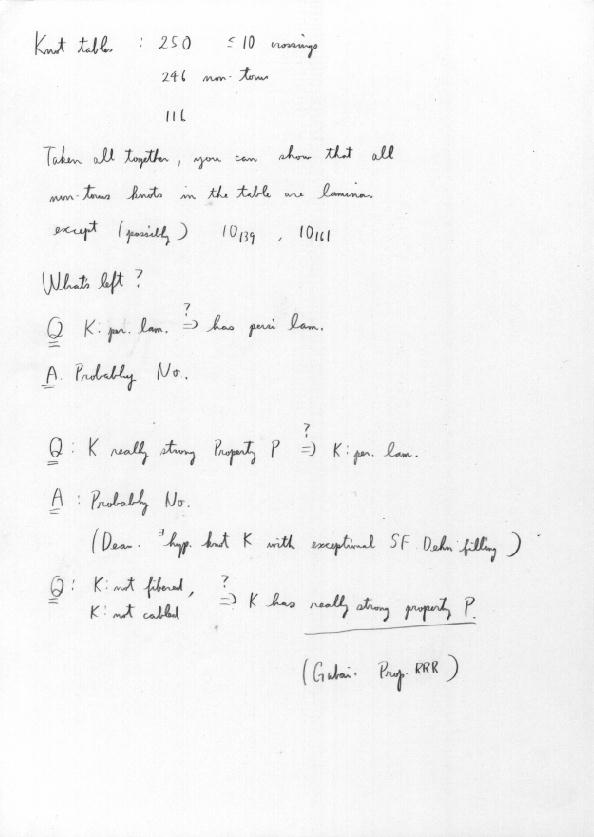 Knot table : 250 ≤ 10 crossings
246 non-torus
116
Taken all together, you can show that all
non-torus knots in the table are laminar
except (possibly) 10₁₃₉ , 10₁₆₁
What's left ?
Q K: per. lam. ?⇒ has persi lam.
A. Probably No.
Q : K really strong Property P ?⇒ K: per. lam.
A : Probably No.
(Dean. ∃hyp. knot K with exceptional SF Dehn filling)
Q : K: not fibered, K: not cabled ?⇒ K has really strong property P.
(Gabai. Prop. RRR)